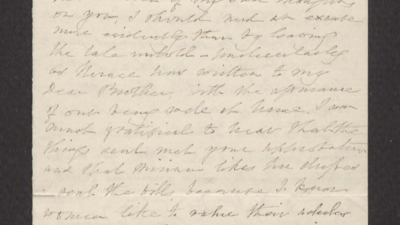 on you, I should not at excuse
mine evidently than by leaving
the tale untold - particularly
as Horace has written to my
dear Brother, with the assurance
of our being well at home. I am
most gratified to hear that the
things sent met your approbation
and that Miriam likes her dresses
I sent the bills because I know
women like to value their